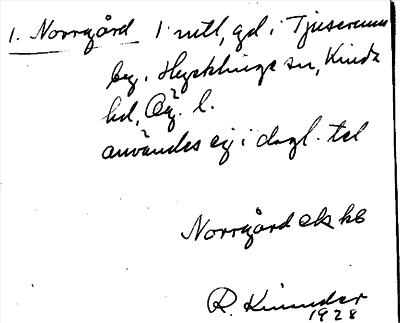 1. Norrgård 1 mtl, gd. i Tjuserum
by. i Hycklinge sn, Kinda
hd, Ög. l.
användes ej i dagl. tal
Norrgård ek kb
R. Kinnander
1928